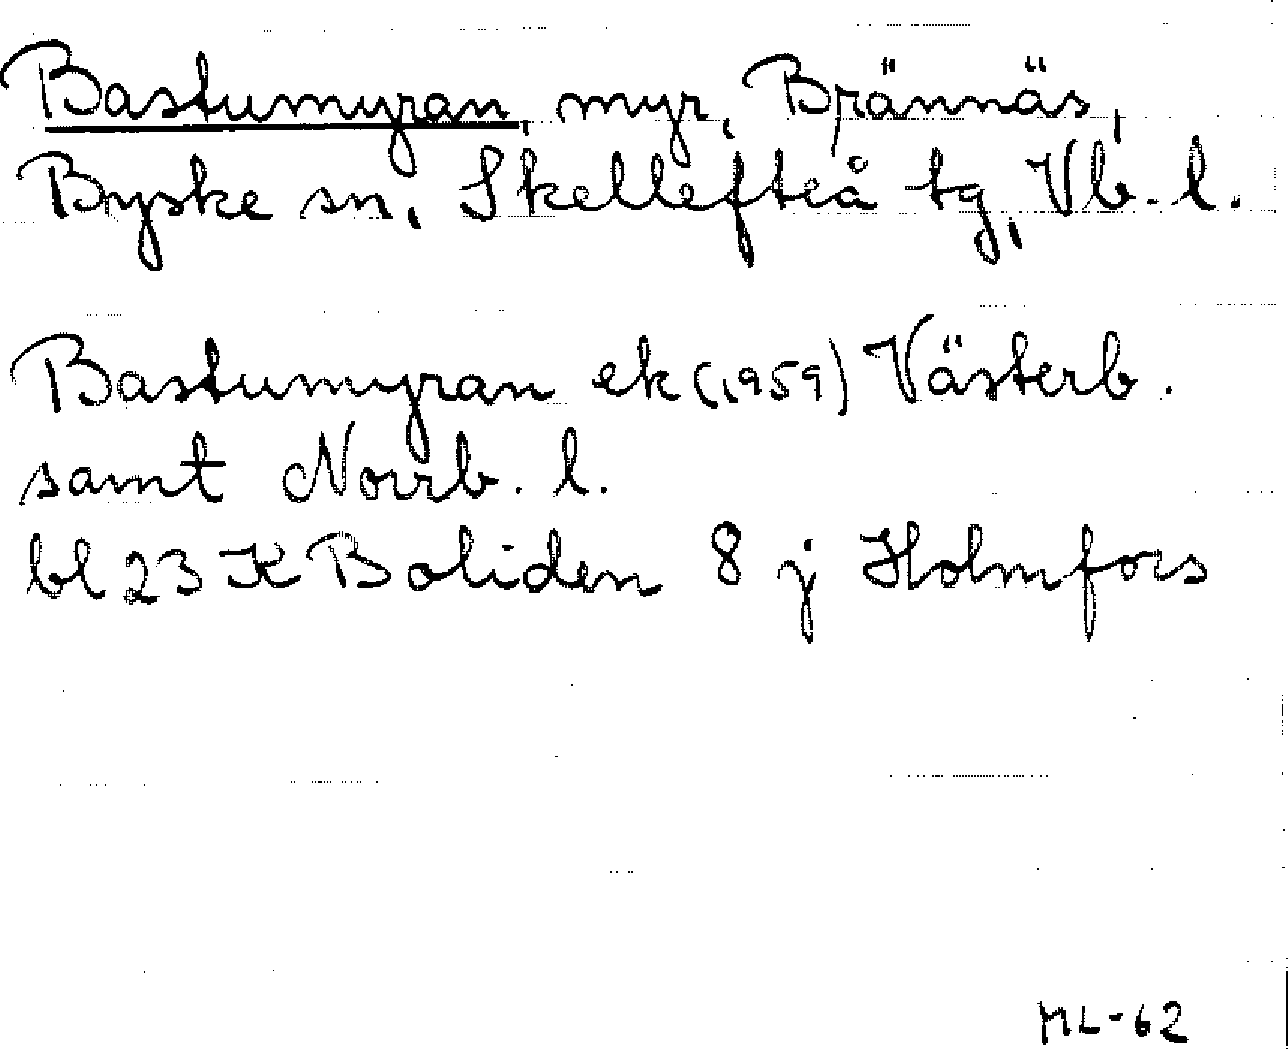 Bastumyran, myr, Brännäs,
Byske sn, Skellefteå tg, Vb. l.
Bastumyran ek (1959) Västerb.
samt Norrb. l.
bl 23 K Boliden 8 j Holmfors
ML-62